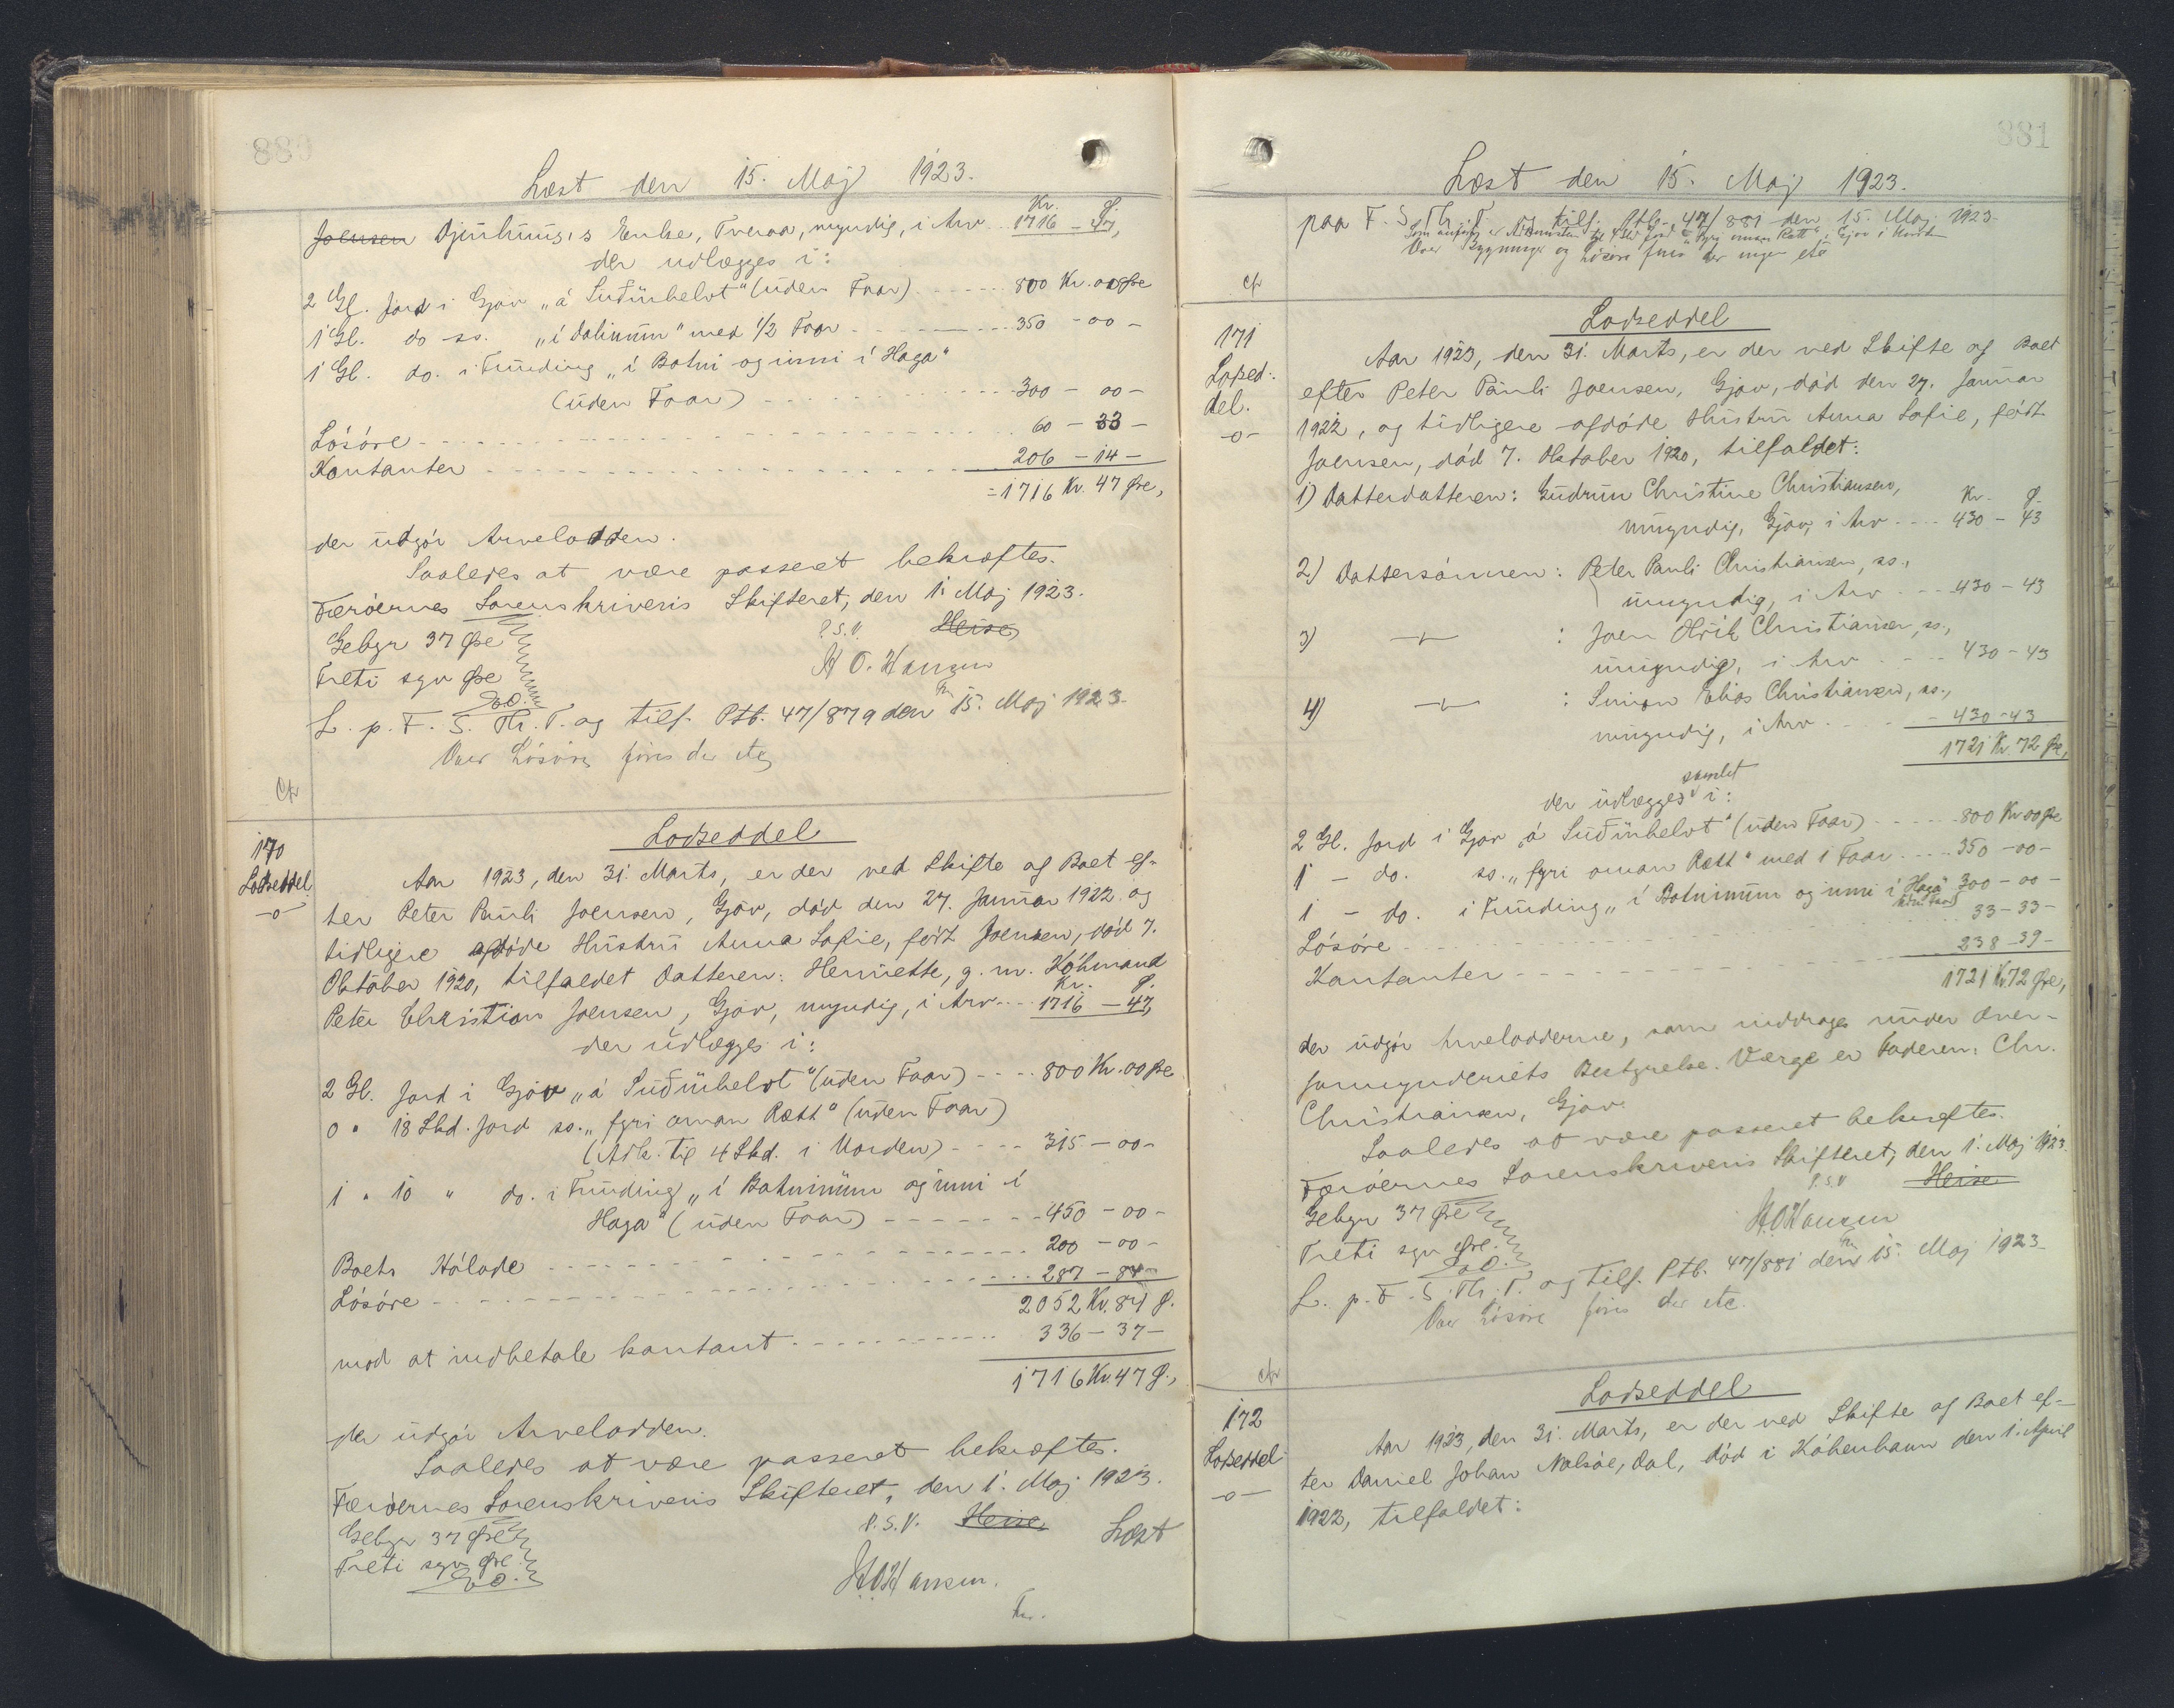 880
Læst den 15. Maj 1923.
Joensen Djúrhuus,s Enke, Tveraa, myndig, i Arv
Kr. Ø.
1716 - 47,
der udlægges i:
2 Gl. Jord i Gjov „á Suðurhelvt" (uden Faar) 800 Kr. 00 Øre
1 Gl. do ss. „í Dalinum" med 1/2 Faar 350 - 00 -
1 Gl. do. i Funding „í Botni og inni í Haga"
(uden Faar) 300 - 00 -
Lósóre 60 - 33 -
Kontanter 206 - 14 -
= 1716 Kr. 47 Øre,
der udgór Arvelodden.
Saaledes at være passeret bekræftes.
Færóernes Sorenskriveris Skifteret, den 1. Maj 1923.
Gebyr 37 Øre P.S.V. Heise
Treti syv Øre H O. Hansen
L. p. F. S. Th. T. og tilf. Ptb. 47/879 den 15. Maj 1923.
Over Lósóre fóres der etc
Cfr
170
Lodseddel
-o-
Lodseddel
Aar 1923, den 31. Marts, er der ved Skifte af Boet ef-
ter Peter Pauli Joensen, Gjov, dód den 27. Januar 1922 og
tidligere afdóde Hustru Anna Sofie, fódt Joensen, dód 7.
Oktober 1920, tilfaldet Datteren: Henriette, g. m. Kóbmand
Peter Christian Joensen, Gjov, myndig, i Arv
Kr. Ø.
1716 - 47,
der udlægges i:
2 Gl. Jord i Gjov „á Suðurhelvt" (uden Faar) 800 Kr. 00 Øre
0 " 18 Skd. Jord ss. „fyri oman Rætt" (uden Faar)
(Adk. til 4 Skd. i Norden) 315 - 00 -
1 " 10 " do. i Funding „í Botninum og inni í
Haga" (uden Faar) 450 - 00 -
Boets Hólade 200 - 00 -
Lósóre 287 - 84 -
2052 Kr. 84 Ø.
mod at indbetale kontant 336 - 37 -
1716 Kr. 47 Ø.,
der udgór Arvelodden.
Saaledes at være passeret bekræftes.
Færóernes Sorenskriveris Skifteret, den 1. Maj 1923.
Gebyr 37 Øre P.S.V. Heise Læst
Treti syv Øre. H O Hansen.
881
Læst den 15. Maj 1923.
paa F. S. Th. T. og tilf. Ptb. 47/881 den 15. Maj 1923.
Over Bygninger og Lósóre fóres der ingen etc
Cfr
171
Lodsed-
del.
-o-
Lodseddel
Aar 1923, den 31. Marts, er der ved Skifte af Boet
efter Peter Pauli Joensen, Gjov, dód den 27. Januar
1922, og tidligere afdóde Hustru Anna Sofie, fódt
Joensen, dód 7. Oktober 1920, tilfaldet:
1) Datterdatteren: Gudrun Christine Christiansen,
Kr. Ø.
umyndig, Gjov, i Arv 430 - 43
2) Dattersónnen: Peter Pauli Christiansen, ss.,
umyndig, i Arv 430 - 43
3) -"- : Joen Hrik Christiansen, ss.,
umyndig, i Arv 430 - 43
4) -"- : Simon Elias Christiansen, ss.,
umyndig, i Arv 430 - 43
1721 Kr. 72 Øre,
samlet
der udlægges i:
2 Gl. Jord i Gjov „á Suðurhelvt" (uden Faar) 800 Kr 00 Øre
1 - do. ss. „fyri oman Rætt" med 1 Faar 350 - 00 -
1 - do. i Funding „í Botninum og inni í Haga" 300 - 00 -
uden Faar
Lósóre 33 - 33 -
Kontanter 238 - 39 -
1721 Kr. 72 Øre,
der udgór Arvelodderne, som inddrages under Over-
formynderiets Bestyrelse. Værge er Faderen: Chr.
Christiansen, Gjov.
Saaledes at være passeret bekræftes.
Færóernes Sorenskriveris Skifteret, den 1. Maj 1923.
Gebyr 37 Øre P.S.V Heise
Treti syv Øre. H O Hansen
L. p. F. S. Th. T. og tilf. Ptb. 47/881 den 15. Maj 1923
Over Lósóre fóres der etc.
Cfr
172
Lodseddel
-o-
Lodseddel
Aar 1923, den 31. Marts, er der ved Skifte af Boet ef-
ter Daniel Johan Nolsóe, Dal, dód i Kóbenhavn den 1. April
1922, tilfaldet: